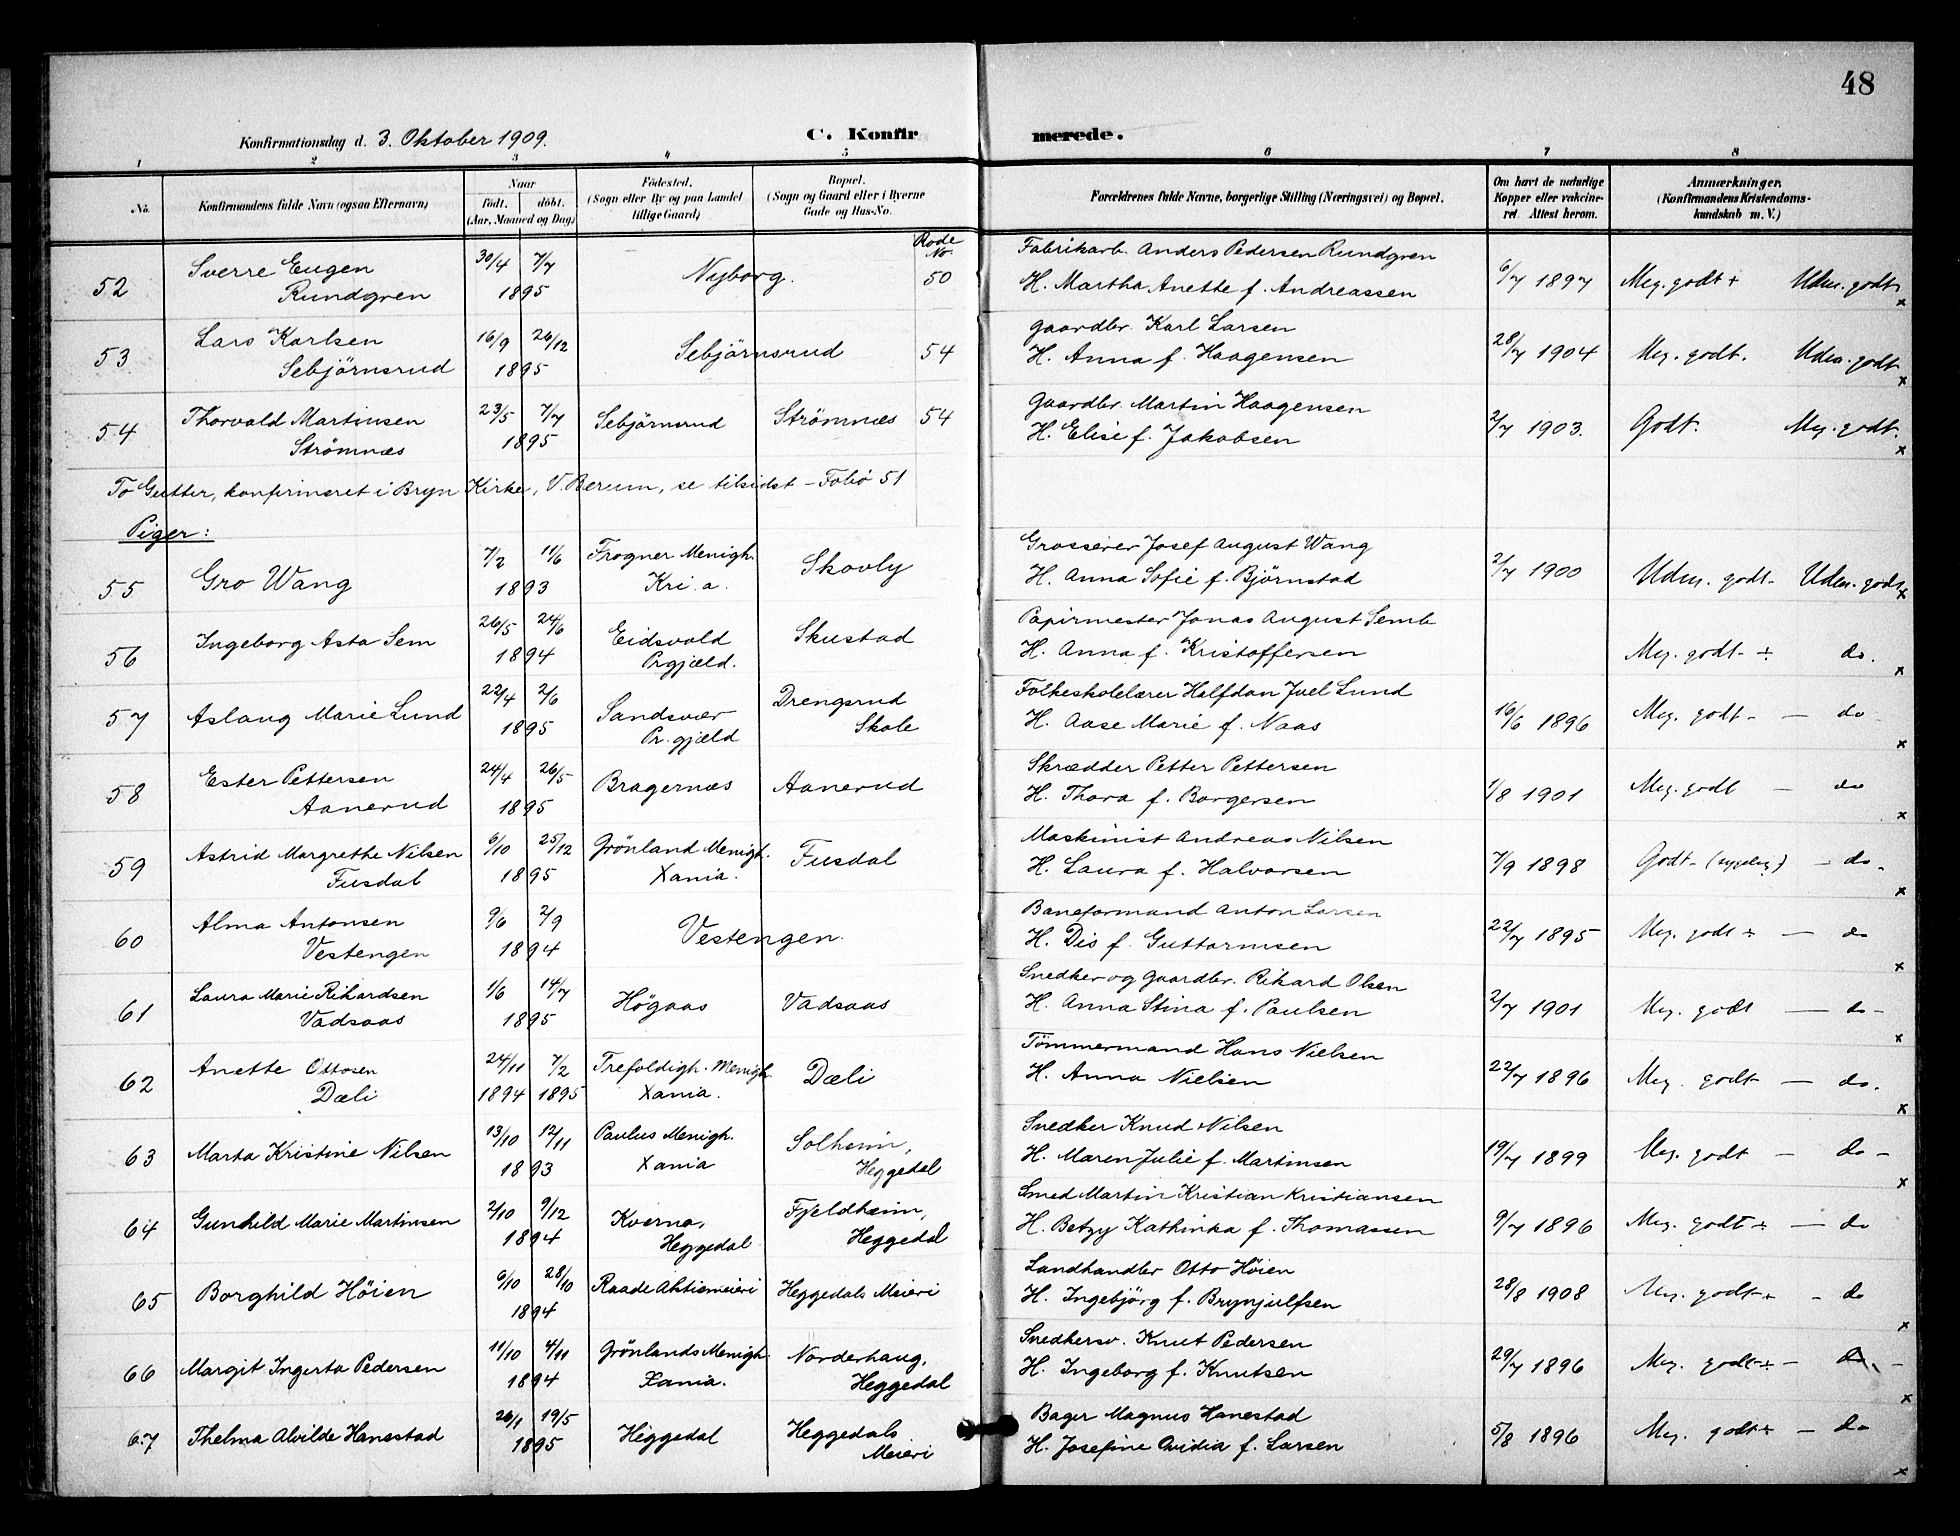 48
Konfirmationsdag d. 3. Oktober 1909.
C. Konfirmerede.
1 2 3 4 5 6 7 8
No. Konfirmandens fulde Navn (ogsaa Efternavn) Naar født. døbt. (Aar, Maaned og Dag) Fødested. (Sogn eller By og paa Landet tillige Gaard) Bopæl. (Sogn og Gaard eller i Byerne Gade og Hus-No. Forældrenes fulde Navne, borgerlige Stilling (Næringsvei) og Bopæl. Om havt de naturlige Kopper eller vakcineret. Attest herom. Anmærkninger. (Konfirmandens Kristendomskundskab m. V.)
Rode No.
52 Sverre Eugen 30/4 7/7 Nyborg. 50 Fabrikarb. Anders Pedersen Rundgren 6/7 1897 Meg. godt + Udm. godt x
Rundgren 1895 H. Martha Anette f. Andreassen
53 Lars Karlsen 16/9 26/12 Sebjörnsrud 54 Gaardbr. Karl Larsen 28/7 1904 Meg. godt. Udm. godt x
Sebjörnsrud 1895 H. Anna f. Haagensen
54 Thorvald Martinsen 23/5 7/7 Sebjörnsrud Strömnæs 54 Gaardbr. Martin Haagensen 2/7 1903. Godt. Meg. godt. x
Strömnæs 1895 H. Elise f. Jakobsen
To Gutter, konfirmeret i Bryn Kirke, V. Berum, se tilsidst – Folio 51
Piger:
55 Gro Wang 7/2 11/6 Frogner Menigh. Skovly Grosserer Josef August Wang 2/7 1900 Udm. godt - Udm. godt x
1893 Kri.a. H. Anna Sofie f. Björnstad
56 Ingeborg Asta Sem 26/5 24/6 Eidsvold Skustad Papirmester Jonas August Semb Meg. godt - ÷ do. x
1894 Prgjæld. H. Anna f. Kristoffersen
57 Aslaug Marie Lund 22/4 2/6 Sandsvær Drengsrud Folkeskolelærer Halfdan Juel Lund 16/6 1896 Meg. godt - — do x
1895 Pr.gjæld Skole H. Aase Marie f. Naas
58 Ester Pettersen 24/4 26/5 Bragernæs Aanerud Skrædder Petter Pettersen 1/8 1901 Meg. godt — do x
Aanerud 1895 H. Thora f. Borgersen
59 Astrid Margrethe Nilsen 6/10 25/12 Grönland Menigh. Fusdal Maskinist Andreas Nilsen 7/9 1898 Godt - — do - x
Fusdal 1895 Xania. H. Laura f. Halvorsen
60 Alma Antonsen 9/6 2/9 Vestengen. Baneformand Anton Larsen 22/7 1895 Meg. godt ÷ — do x
Vestengen 1894 H. Dis f. Guttormsen
61 Laura Marie Rikardsen 1/6 14/7 Högaas Vadsaas Snedker og Gaardbr. Rikard Olsen 2/7 1901 Meg. godt — do - x
Vadsaas 1895 H. Anna Stina f. Paulsen
62 Anette Ottosen 24/11 7/2 Trefoldigh. Menigh. Dæli Tömmermand Hans Nielsen 22/7 1896 Meg. godt — do. x
Dæli 1894 1895 Xania. H. Anna Nielsen
63 Marta Kristine Nilsen 13/10 12/11 Paulus Menigh. Solheim, Snedker Knud Nilsen 19/7 1899 Meg. godt — do - x
1893 Xania Heggedal H. Maren Julie f. Martinsen
64 Gunhild Marie Martinsen 2/10 9/12 Kverna, Fjeldheim, Smed Martin Kristian Kristiansen 9/7 1896 Meg. godt ÷ — do
1894 Heggedal Heggedal H. Betzy Kathinka f. Thomassen
65 Borghild Höien 6/10 28/10 Raade Aktiemeieri Heggedals Meieri Landhandler Otto Höien 28/8 1908 Meg. godt + - do x
1894 H. Ingebjörg f. Brynjulfsen
66 Margit Ingerta Pedersen 11/10 4/11 Grönlands Menigh. Norderhaug, Snedkersv. Knut Pedersen 29/7 1896 Meg. godt + - do x
1894 Xania. Heggedal H. Ingeborg f. Knutsen
67 Thelma Alvilde Hanestad 26/1 19/5 Heggedal Heggedals Bager Magnus Hanestad 5/8 1896 Meg. godt + — do x
1895 Meieri H. Josefine Ovidia f. Larsen